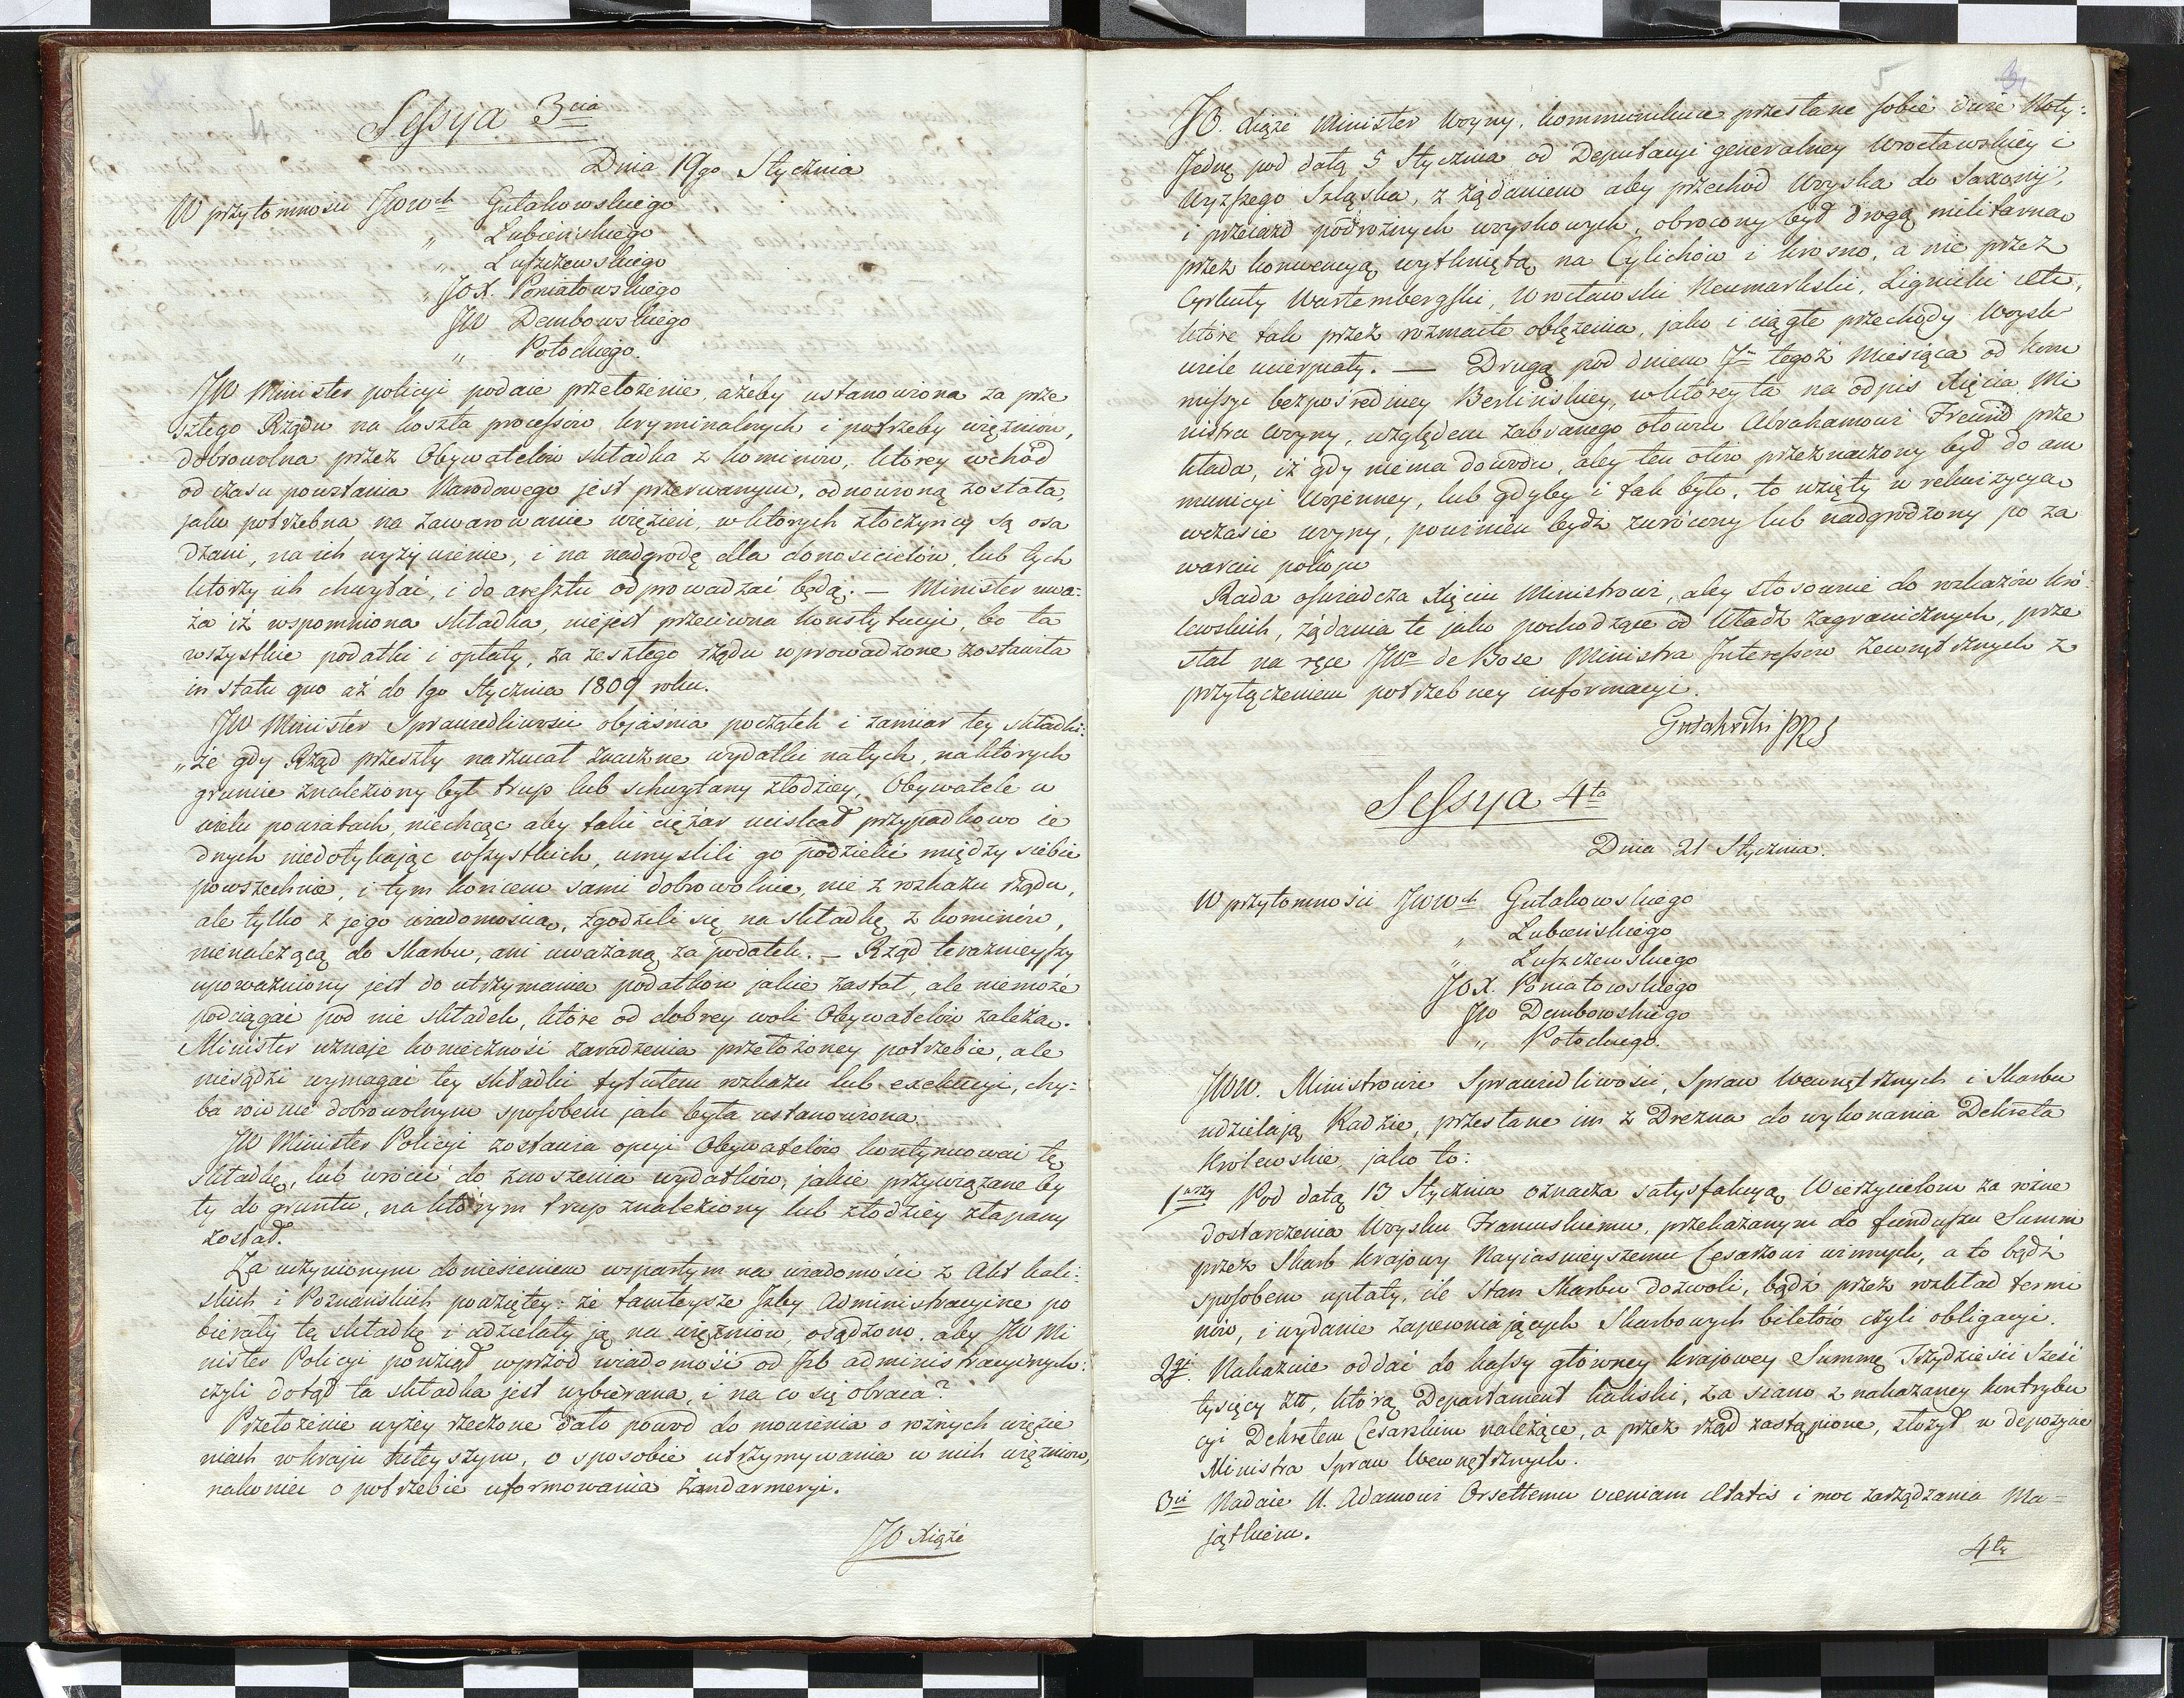 Sessya 3cia
Dnia 19go Stycznia
W przytomności JWWch Gutakowskiego
" Lubieńskiego
" Łuszczewskiego
" JOX. Poniatowskiego
JW Dembowskiego
" Potockiego.
JW Minister policyi podaie przełożenie, ażeby ustanowiona za prze
szłego Rządu na koszta processów kryminalnych i potrzeby więźniów,
dobrowolna przez Obywatelów składka z kominów, którey wchód
od czasu powstania Narodowego jest przerwanym, odnowioną została
jako potrzebna na zawarowanie więzień, w których złoczyńcy są osa
dzani, na ich wyżywienie, i na nadgrodę dla donosicielów, lub tych
którzy ich chwytać, i do aresztu odprowadzać będą. — Minister uwa:
ża iż wspomniona składka, niejest przeciwna konstytucyi, bo ta
wszystkie podatki i opłaty, za zeszłego rządu wprowadzone zostawiła
in statu quo aż do 1go Stycznia 1809 roku.
JW Minister Sprawiedliwości objaśnia początek i zamiar tey składki:
„że gdy Rząd przeszły narzucał znaczne wydatki na tych, na których
gruncie znaleziony był trup lub schwytany złodziey, Obywatele w
wielu powiatach, niechcąc aby taki ciężar uciskał przypadkowo ie
dnych niedotykając wszystkich, umyslili go podzielić między siebie
powszechnie, i tym końcem sami dobrowolnie, nie z rozkazu rządu,
ale tylko z jego wiadomością, zgodzili się na składkę z kominów,
nienależącą do Skarbu, ani uważaną za podatek. — Rząd teraznieyszy
upoważniony jest do utrzymania podatków jakie zastał, ale niemoże
podciągać pod nie składek, które od dobrey woli Obywatelów zależą.
Minister uznaje konieczność zaradzenia przełożoney potrzebie, ale
niesądzi wymagać tey składki tytułem rozkazu lub exekucyi, chy:
ba rownie dobrowolnym sposobem jak była ustanowiona.
JW Minister Policyi zostawia opcyi Obywatelów kontynuować tę
składkę, lub wrócić do znoszenia wydatków, jakie przywiązane by
ły do gruntu, na którym trup znaleziony lub złodziey złapany
został.
Za uczynionym doniesieniem wspartym na wiadomości z Akt kali:
skich i Poznańskich powziętey: że tamteysze Izby Administracyine po
bierały tę składkę i udzielały ją na więzniów, osądzono, aby JW Mi
nister Policyi powziął wprzód wiadomość od Izb administracyinych:
czyli dotąd ta składka jest wybierana, i na co się obraca?
Przełożenie wyżey rzeczone dało powod do mówienia o rożnych więzie
niach w kraju tuteyszym, o sposobie utrzymywania w nich więzniów,
nakoniec o potrzebie uformowania Żandarmeryi.
JO Xiąże
5
JO. Xiąże Minister Woyny, kommunikuie przesłane sobie dwie Noty:
Jednę pod datą 5 Stycznia od Deputacyi generalney Wrocławskiey i
Wyższego Szląska, z żądaniem aby przechód Woyska do Saxonij,
i przeiazd podróżnych woyskowych, obrocony był drogą militarną
przez konwencyą wytkniętą na Cylichów i Krosno, a nie przez
Cyrkuły Wartembergski, Wrocławski Neumarkski, Lignicki etc,
które tak przez rozmaite oblężenia, jako i ciągłe przechody Woysk
wiele ucierpiały. — Drugą pod dniem 7m tegoż Miesiąca od Kom
missyi bezpośredniey Berlińskiey, w którey ta na odpis Xięcia Mi
nistra Woyny, względem zabranego ołowiu Abrahamowi Freund prze
kłada, iż gdy niema dowodu, aby ten ołów przeznaczony był do am
municyi Wojenney, lub gdyby i tak było, to wzięty w rekwizycyą
wczasie woyny, powinien bydź zwrócony lub nadgrodzony po za
warciu pokoju
Rada oświadcza Xięciu Ministrowi, aby stosownie do rozkazów kró
lewskich, żądania te jako pochodzące od Władz zagranicznych, prze
słał na ręce JWo de Bose Ministra Interessów Zewnętrznych z
przyłączeniem potrzebney informacyi.
Gutakowski PRS
Sessya 4ta
Dnia 21 Stycznia.
W przytomności JWWch Gutakowskiego
" Lubieńskiego
" Łuszczewskiego
JOX. Poniatowskiego
JW Dembowskiego
" Potockiego.
JWW. Ministrowie Sprawiedliwości, Spraw Wewnętrznych i Skarbu
udzielają Radzie, przesłane im z Drezna do wykonania Dekreta
Królewskie jako to:
1wszy Pod datą 13 Stycznia oznacza satysfakcyą Wierzycielom za rożne
dostarczenia Woysku Francuskiemu, przekazanym do funduszu Summ
przez Skarb krajowy Nayiasnieyszemu Cesarzowi winnych, a to bądź
sposobem upłaty, ile stan Skarbu dozwoli, bądź przez rozkład termi
nów, i wydanie zapewniających Skarbowych biletów czyli obligacyi.
2gi. Nakazuie oddać do kassy główney krajowey Summę Trzydzieści Sześć
tysięcy Złł, którą Departament kaliski, za siano z nakazaney kontrybu
cyi Dekretem Cesarskim należące, a przez rząd zastąpione, złożył w depozycie
Ministra Spraw Wewnętrznych.
3ci Nadaie U. Adamowi Orsettemu veniam aetatis i moc zarządzania Ma=
jątkiem.
4ty